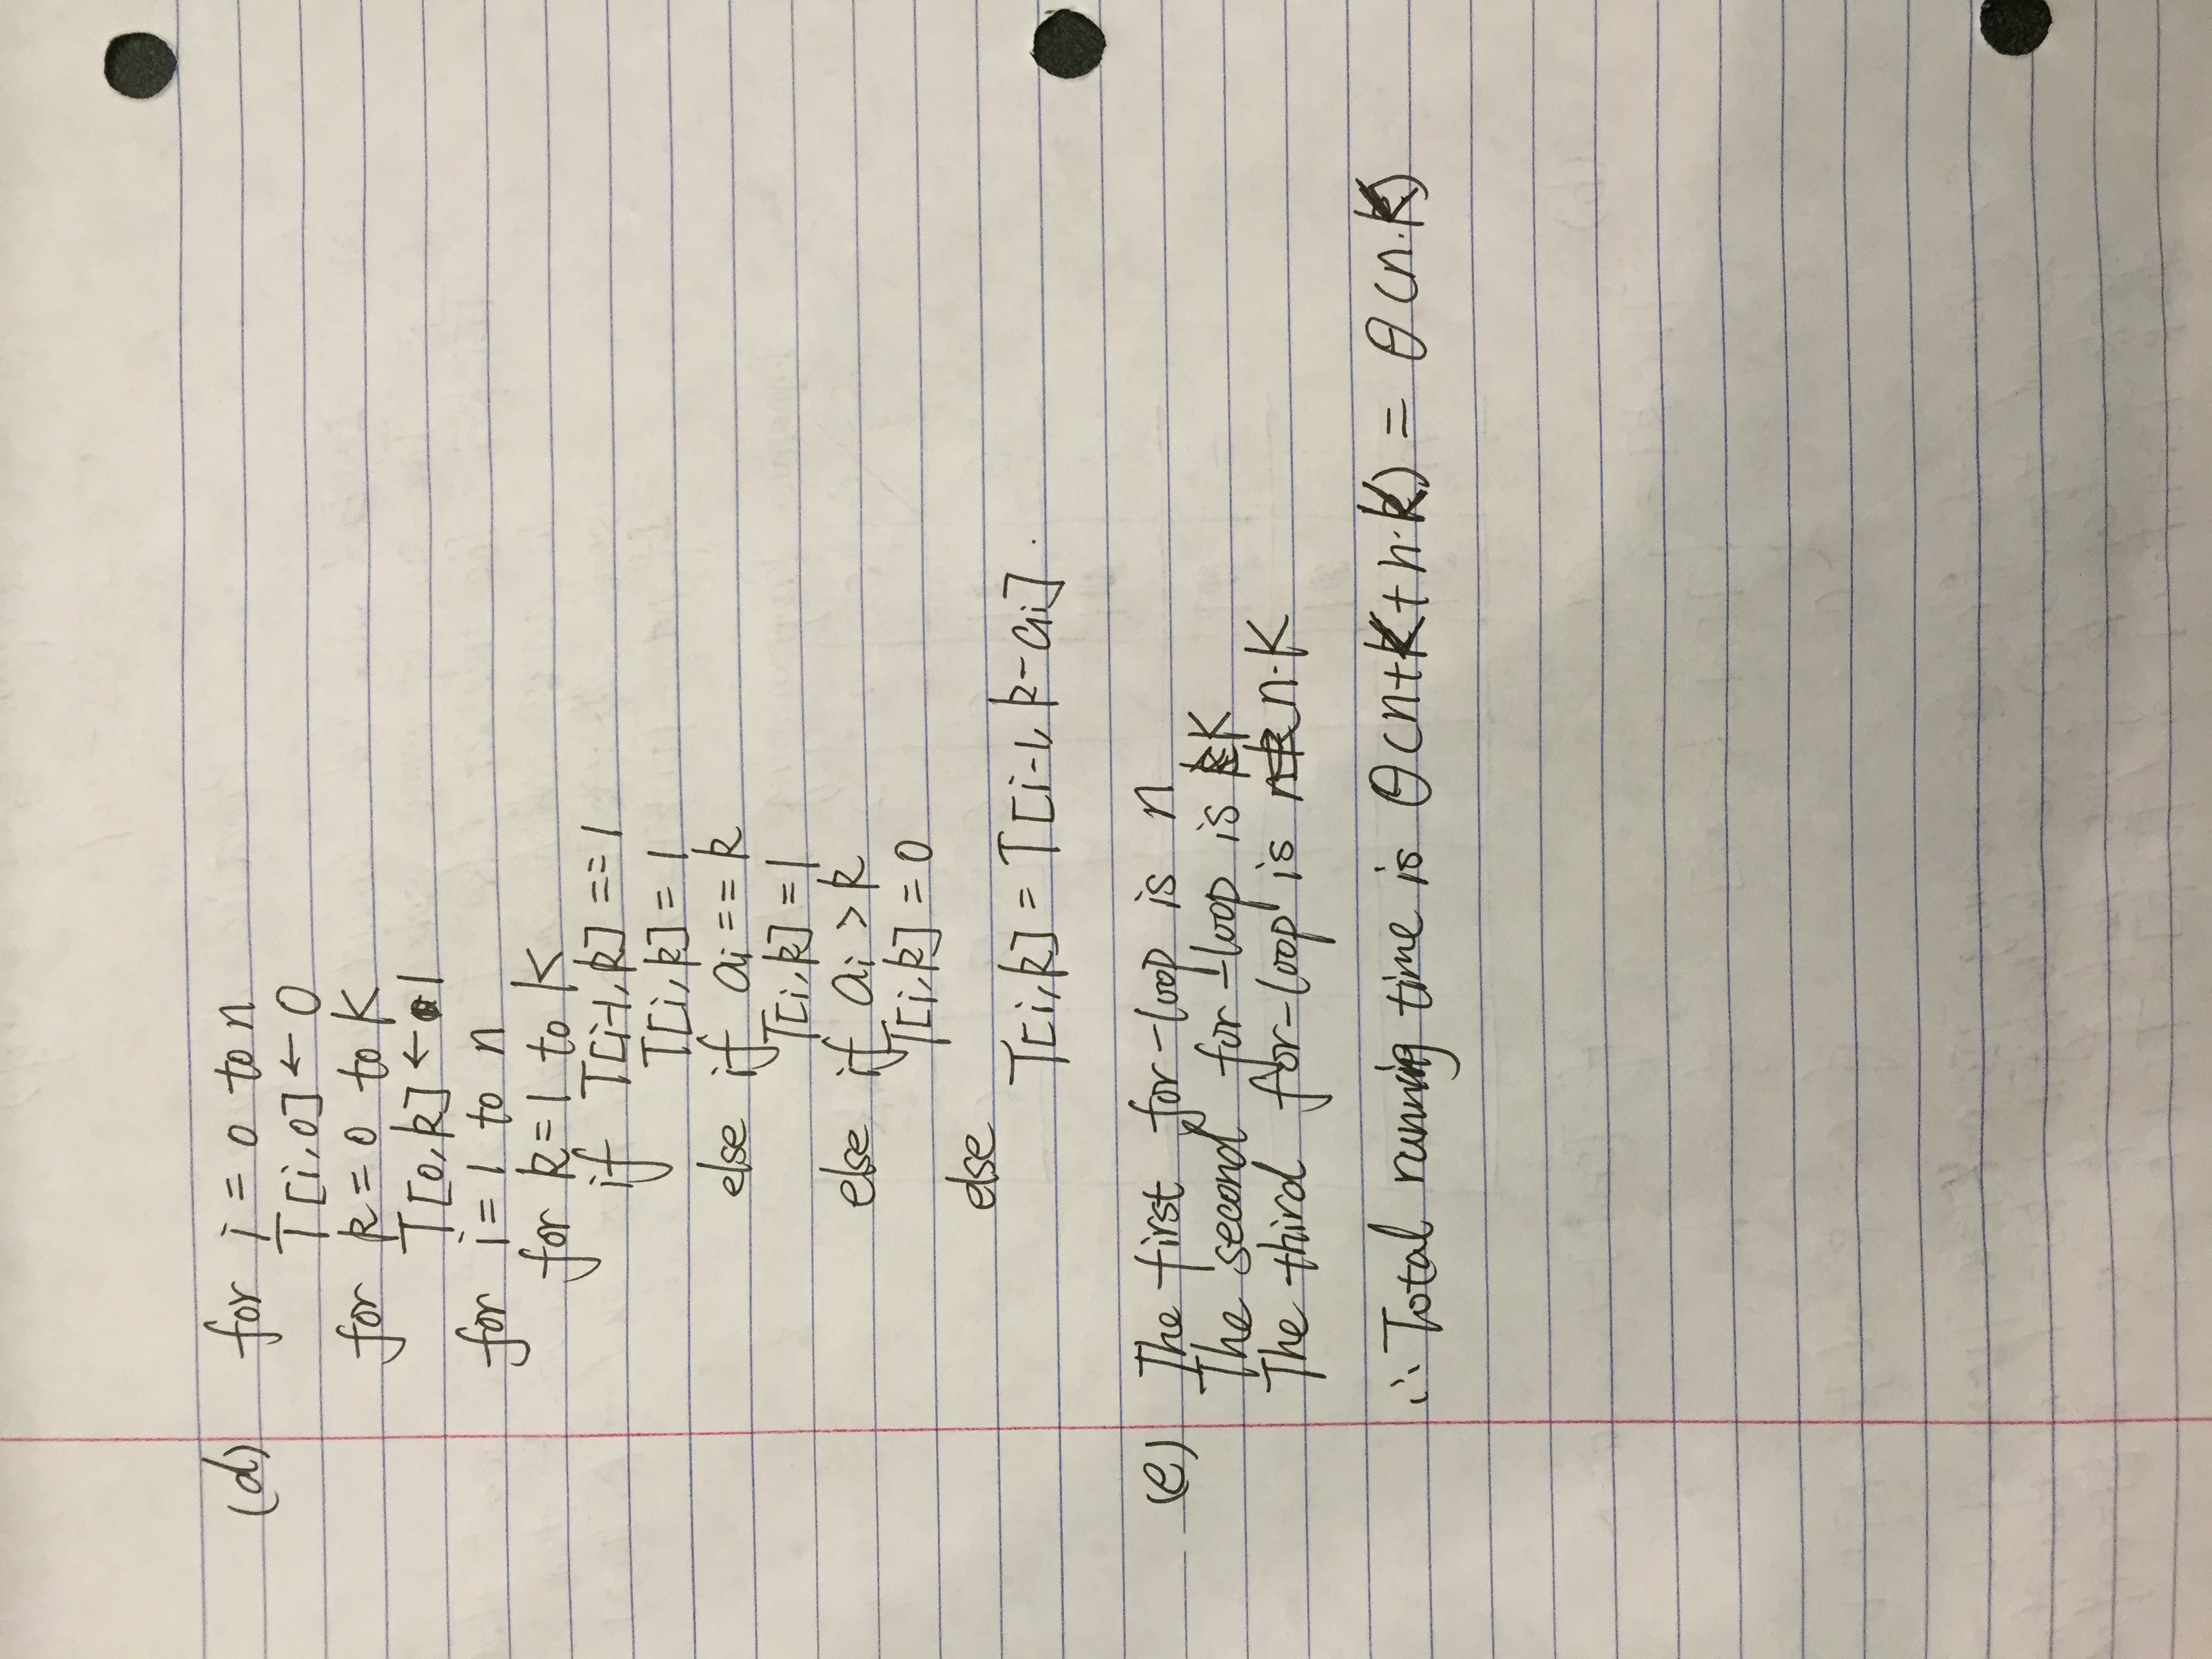 (d) for i = 0 to n
T[i,0] ← 0
for k = 0 to K
T[0,k] ← 1
for i = 1 to n
for k = 1 to K
if T[i-1,k] == 1
T[i,k] = 1
else if ai == k
T[i,k] = 1
else if ai > k
T[i,k] = 0
else
T[i,k] = T[i-1, k-ai].
(e) The first for-loop is n
The second for-loop is K
The third for-loop is n·K
∴ Total running time is θ(n+K+n·K) = θ(n·K)